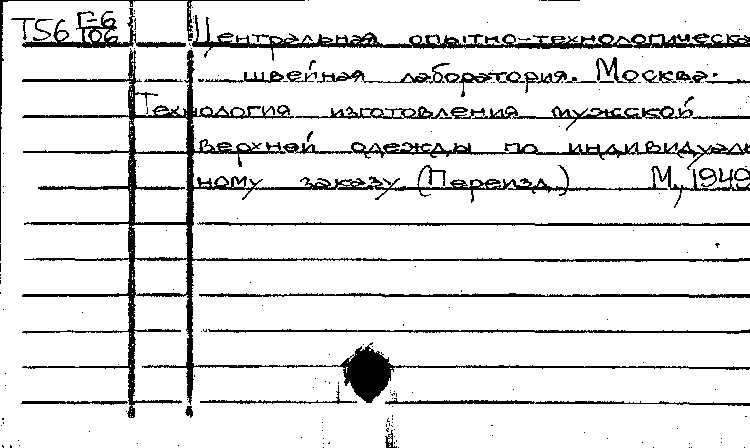 Т56 Г-6/106 Центральная опытно-технологическа
швейная лаборатория. Москва.
Технология изготовления мужской
верхней одежды по индивидуаль
ному заказу (Переизд.) М, 1949